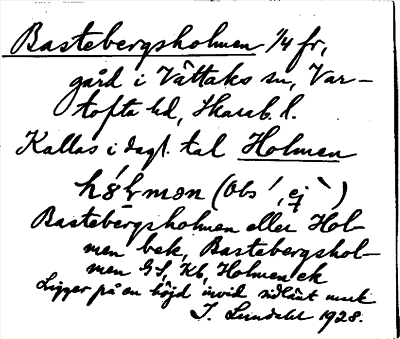 Bastebergsholmen 1/4 fr,
gård i Vättaks sn, Var-
tofta hd, Skarab. l.
Kallas i dagl. tal Holmen
(Obs ', ej `)
Bastebergsholmen eller Hol-
men bek, Bastebergshol-
men GS, Kb, Holmen ek
Ligger på en höjd invid sidlänt mark
J. Lundahl 1928.